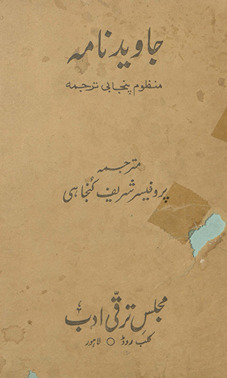 جاوید نامہ
منظوم پنجابی ترجمہ
مترجمہ
پروفیسر شریف کنجاہی
مجلس ترقی ادب
کلب روڈ ○ لاہور